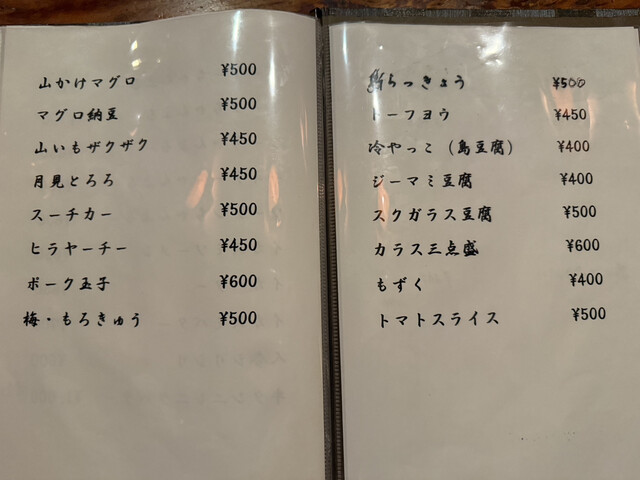 山かけマグロ ¥500
マグロ納豆 ¥500
山いもザクザク ¥450
月見とろろ ¥450
スーチカー ¥500
ヒラヤーチー ¥450
ポーク玉子 ¥600
梅・もろきゅう ¥500
らっきょう ¥500
トーフヨウ ¥450
冷やっこ(島豆腐) ¥400
ジーマミ豆腐 ¥400
スクガラス豆腐 ¥500
カラス三点盛 ¥600
もずく ¥400
トマトスライス ¥500